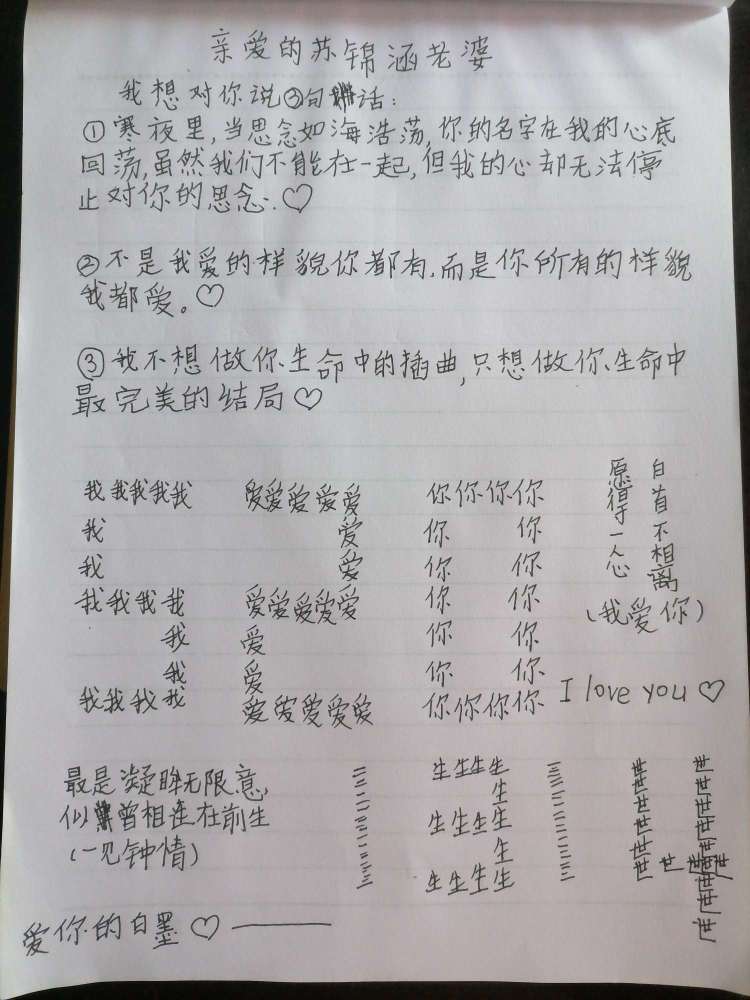 亲爱的苏锦涵老婆
我想对你说③句话:
①寒夜里,当思念如海浩荡,你的名字在我的心底
回荡,虽然我们不能在一起,但我的心却无法停
止对你的思念.♡
②不是我爱的样貌你都有,而是你所有的样貌
我都爱。♡
③我不想做你生命中的插曲,只想做你生命中
最完美的结局♡
我我我我我 爱爱爱爱爱 你你你你
我 爱 你 你
我 爱 你 你
我我我我 爱爱爱爱爱 你 你
我 爱 你 你
我 爱 你 你
我我我我 爱爱爱爱爱 你你你你
愿得一人心
白首不相离
(我爱你)
I love you ♡
最是凝眸无限意,
似曾相连在前生
(一见钟情)
三 生生生生 三 世 世
二 生 三 世 世
二 生生生生 二 世 世
二 生 二 世 世
三 生生生生 三 世 世 世 世
爱你的白墨♡